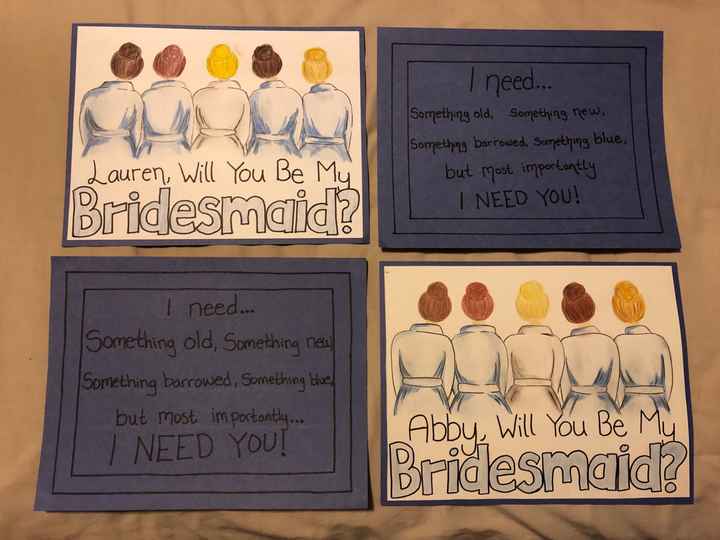 Lauren, Will You Be My
Bridesmaid?
I need...
Something old, Something new,
Something borrowed, Something blue,
but most importantly
I NEED YOU!
I need...
Something old, Something new,
Something barrowed, Something blue,
but most importantly...
I NEED YOU!
Abby, Will You Be My
Bridesmaid?